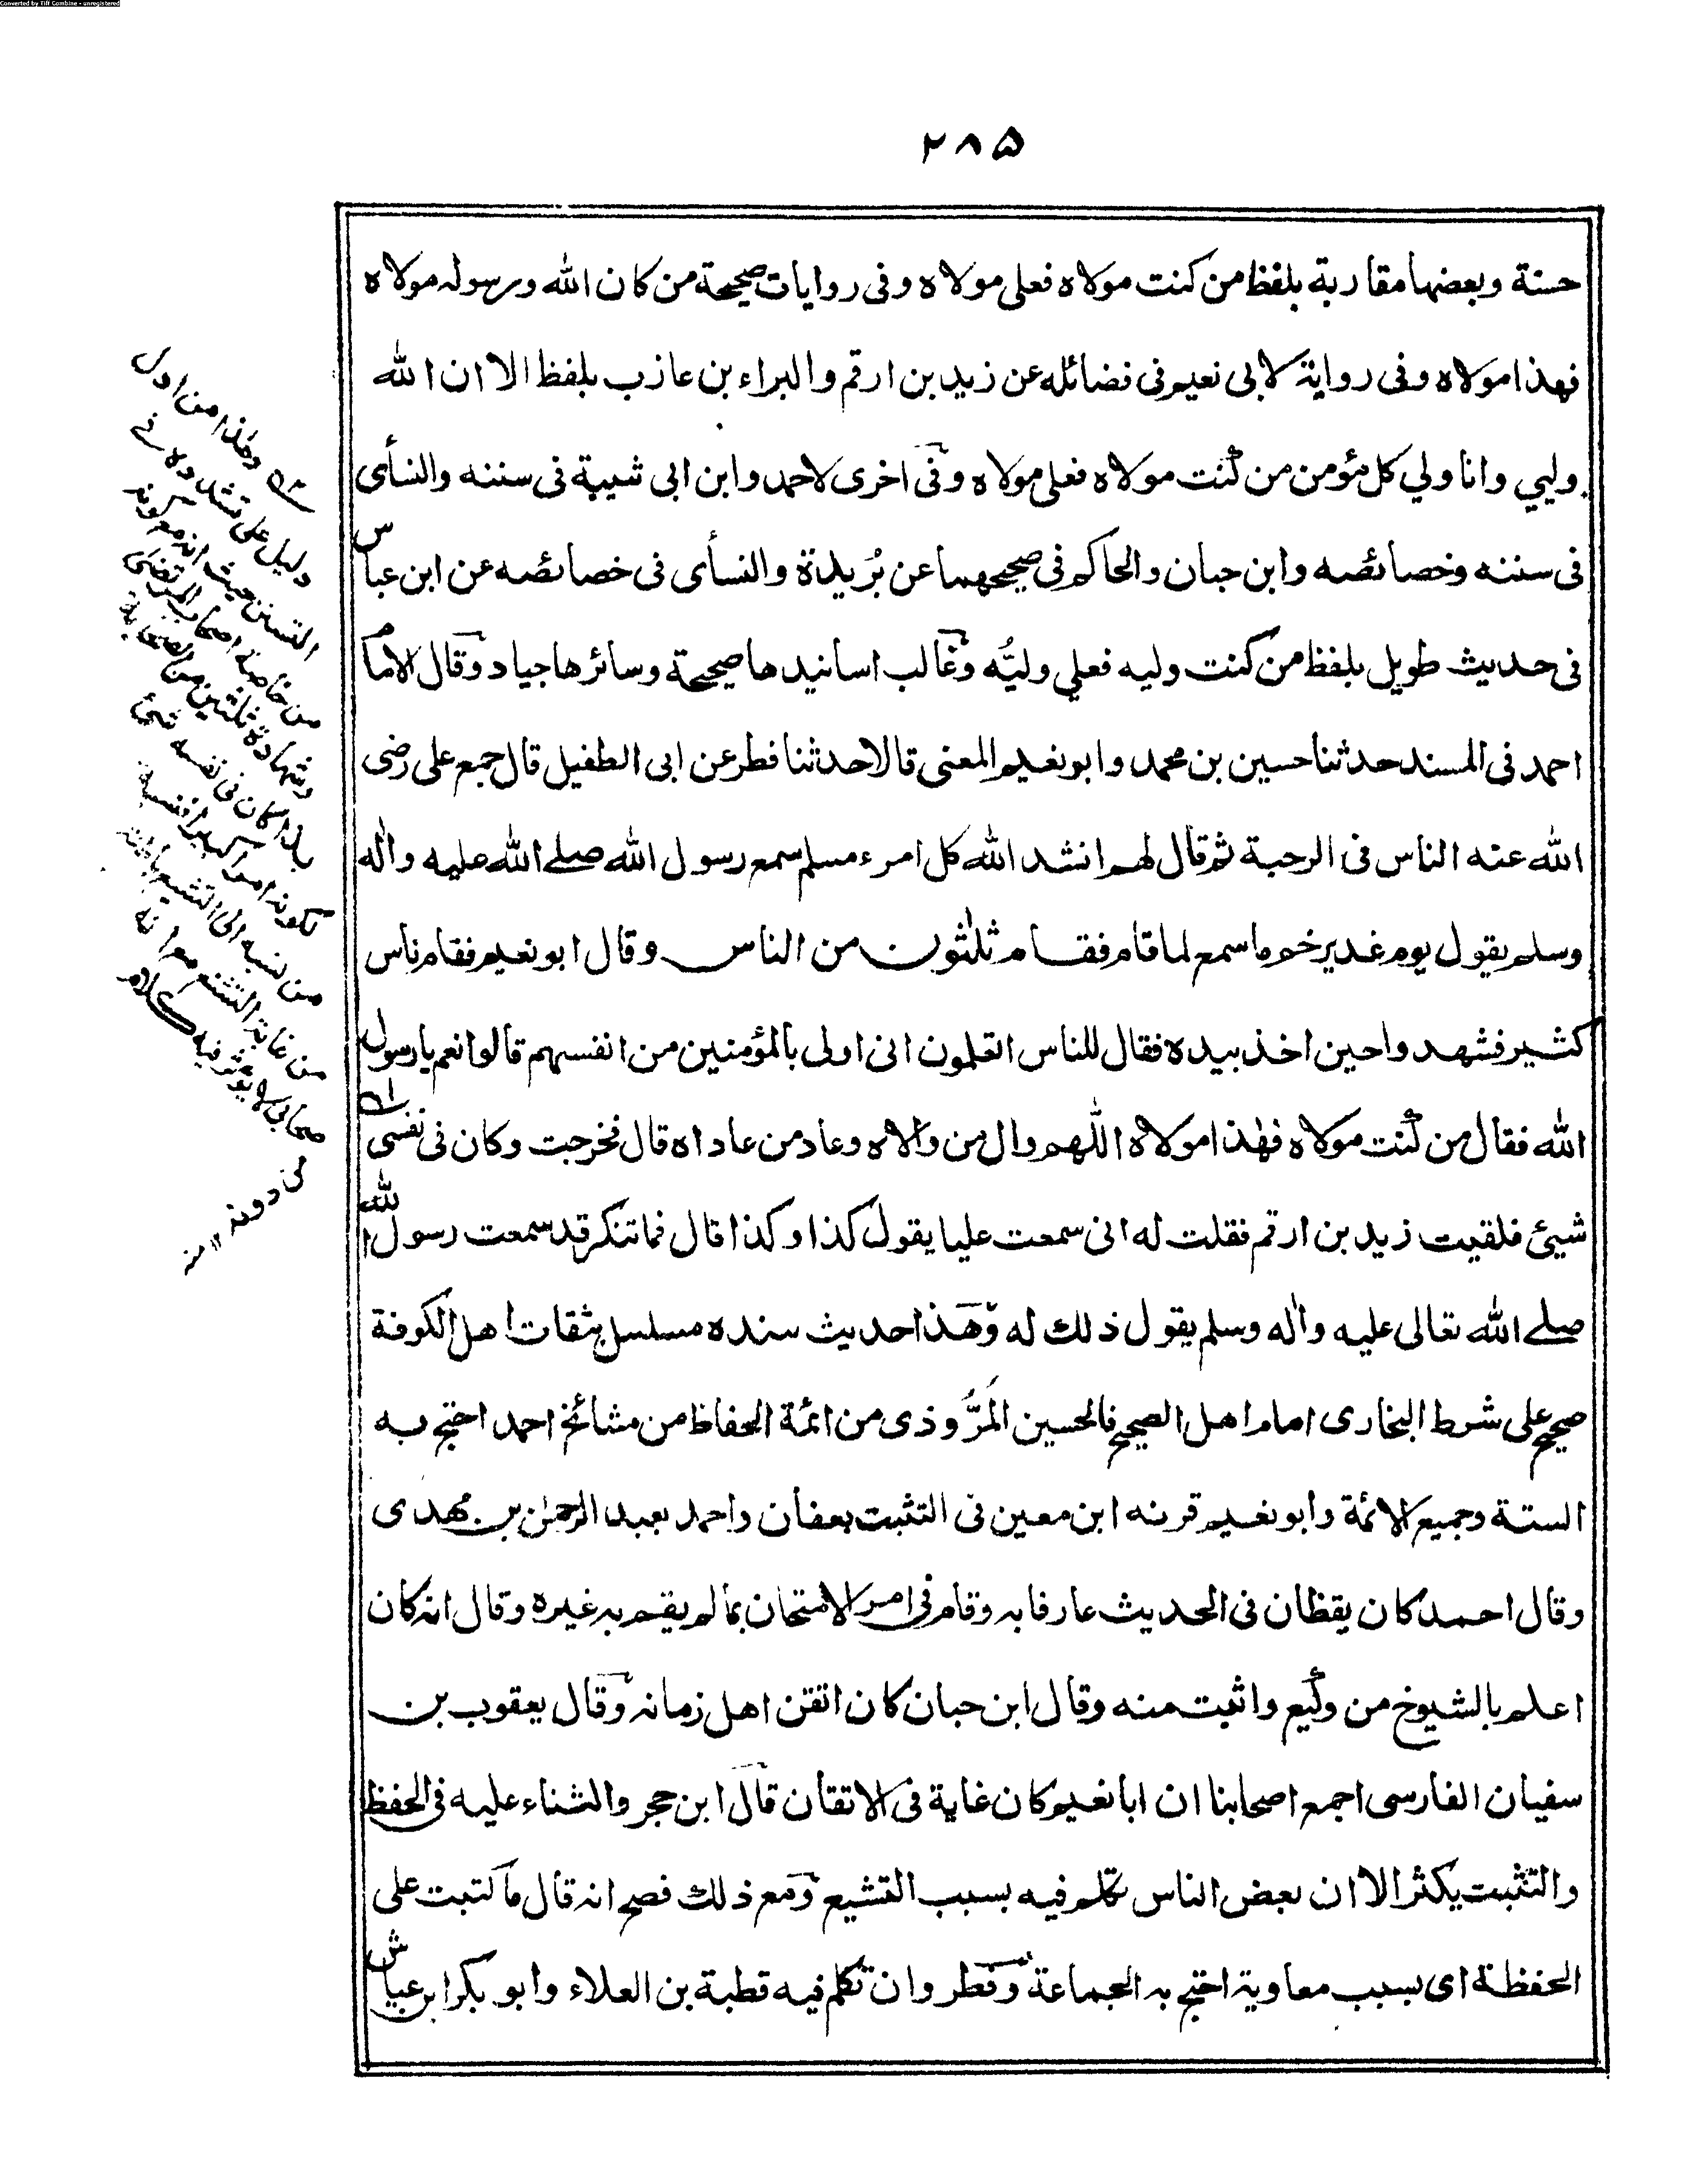 Converted by Tiff Combine - unregistered
۲۸۵
حسنة وبعضها مقاربة بلفظ من كنت مولاه فعلى مولاه وفى روايات صحيحة من كان الله ورسوله مولاه
فهذا مولاه وفى رواية لابى نعيم فى فضائله عن زيد بن ارقم والبراء بن عازب بلفظ الا ان الله
وليي وانا ولي كل مؤمن من كنت مولاه فعلى مولاه وفى اخرى لاحمد وابن ابى شيبة فى سننه والنسأى
فى سننه وخصائصه وابن حبان والحاكم فى صحيحهما عن بُريدة والنسأى فى خصائصه عن ابن عباس
فى حديث طويل بلفظ من كنت وليه فعلي وليُّه وغالب اسانيدها صحيحة وسائرها جياد وقال الامام
احمد فى المسند حدثنا حسين بن محمد وابو نعيم المعنى قالا حدثنا فطر عن ابى الطفيل قال جمع على رضى
الله عنه الناس فى الرحبة ثم قال لهم انشد الله كل امرء مسلم سمع رسول الله صلے الله عليه واٰله
وسلم يقول يوم غدير خم ما سمع لما قام فقام ثلٰثون من الناس وقال ابو نعيم فقام ناس
كثير فشهدوا حين اخذ بيده فقال للناس اتعلمون انى اولى بالمؤمنين من انفسهم قالوا نعم يا رسول
الله فقال من كنت مولاه فهٰذا مولاه اللّٰهم وال من والاه وعاد من عاداه قال فخرجت وكان فى نفسى
شيئ فلقيت زيد بن ارقم فقلت له انى سمعت عليا يقول كذا وكذا قال فما تنكر قد سمعت رسول الله
صلے الله تعالى عليه واٰله وسلم يقول ذلك له وهذا حديث سنده مسلسل بثقات اهل الكوفة
صحيح على شرط البخارى امام اهل الصحيح فالحسين المَرُّوذى من ائمة الحفاظ من مشائخ احمد احتج به
الستة وجميع الائمة وابو نعيم قرنه ابن معين فى التثبت بعفان واحمد بعبد الرحمٰن بن مهدى
وقال احمد كان يقظان فى الحديث عارفا به وقام فى امر الامتحان بما لم يقم به غيره وقال انه كان
اعلم بالشيوخ من وكيع واثبت منه وقال ابن حبان كان اتقن اهل زمانه وقال يعقوب بن
سفيان الفارسى اجمع اصحابنا ان ابا نعيم كان غاية فى الاتقان قال ابن حجر والثناء عليه فى الحفظ
والتثبت يكثر الا ان بعض الناس تكلم فيه بسبب التشيع ومع ذلك فصح انه قال ما كتبت على
الحفظة اى بسبب معاوية احتج به الجماعة وفطر وان تكلم فيه قطبة بن العلاء وابو بكر ابن عياش
وهٰذا من ادل
دليل على تشدده فى
التسنن حيث انه مع كونه
من خاصة اصحاب المرتضى
وشهادة ثلثين من الصحابة
بذا كان فى نفسه شئ
لكونه امرا كبيرا
من نسبه الى التشيع
من غاية التشنع مع انه
صحابى لا يؤثر فيه كلام
من دونه ۱۲ منه